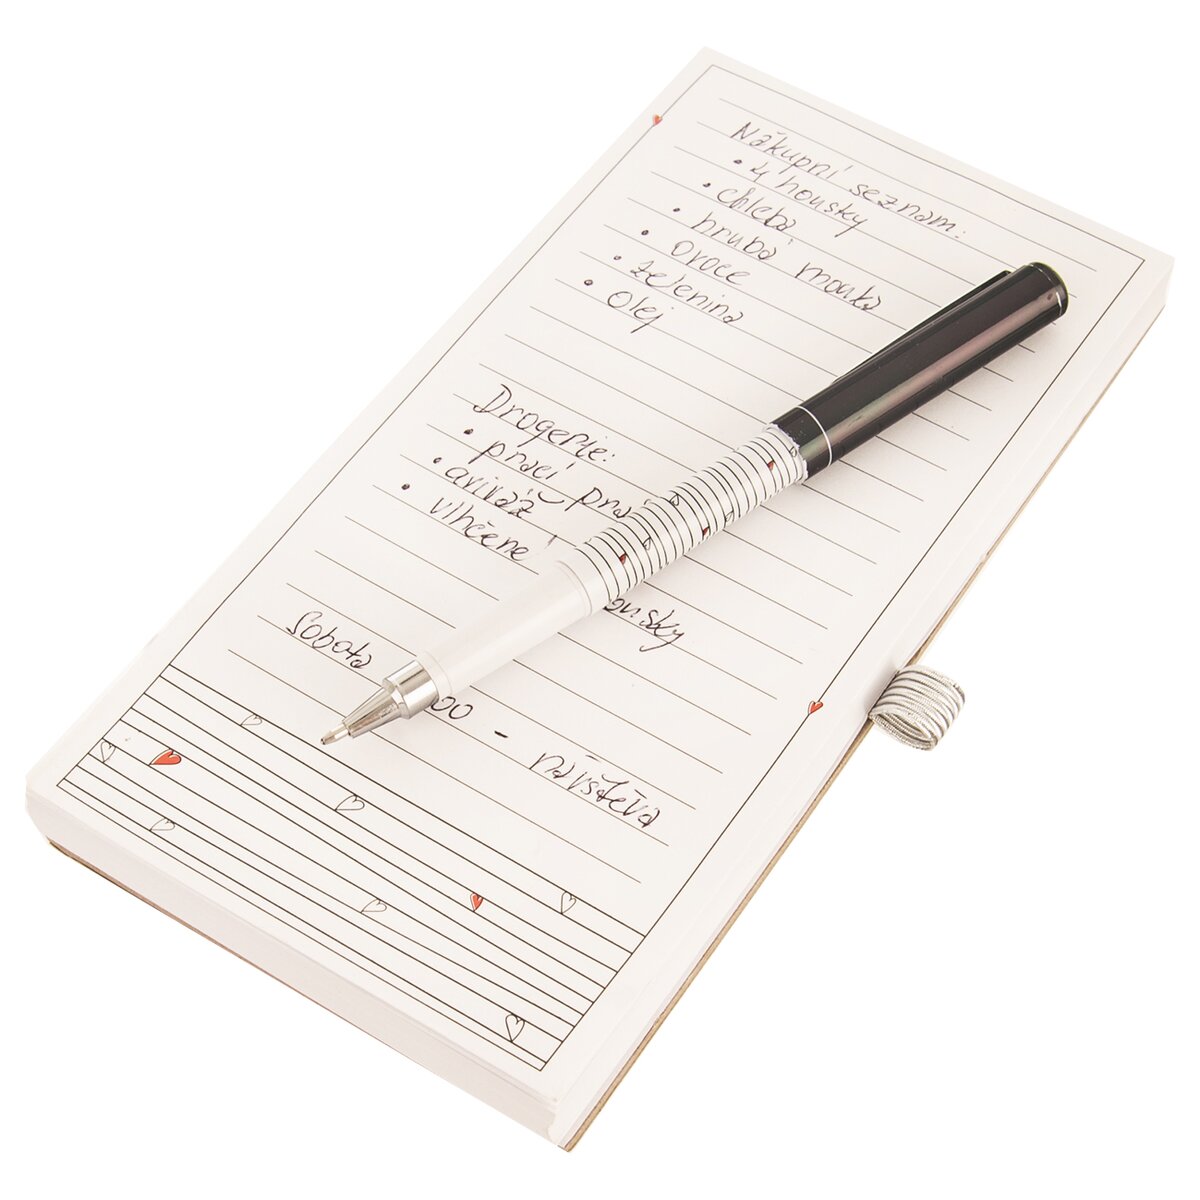 Nákupní seznam:
• 4 housky
• chleba
• hrubá mouka
• ovoce
• zelenina
• Olej
Drogerie:
• prací
• aviváž
• vlhčené
Sobota
- návštěva